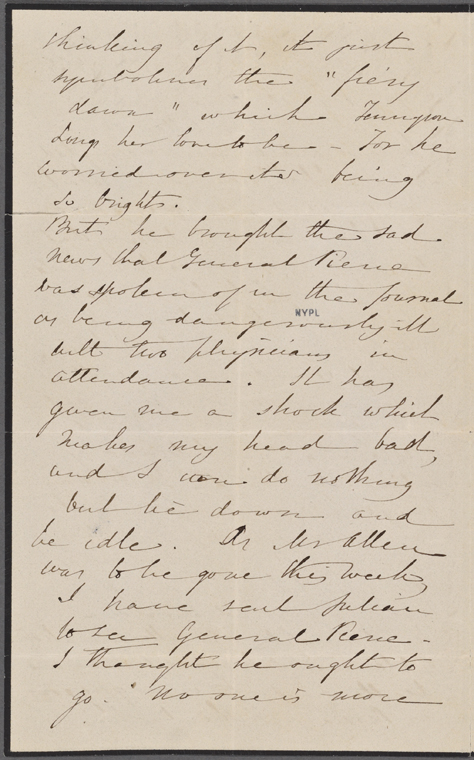 thinking of it, it just
symbolizes the "fiery
dawn" which Tennyson
sings her love to be - For he
worried over its being
so bright.
But he brought the sad
news that General Pierce
was spoken of in the Journal
as being dangerously ill
NYPL
with two physicians in
attendance. It has
given me a shock which
makes my head bad,
and I can do nothing
but lie down and
be idle. As Mr Allen
was to be gone this week,
I have sent Julian
to see General Pierce -
I thought he ought to
go. No one is more